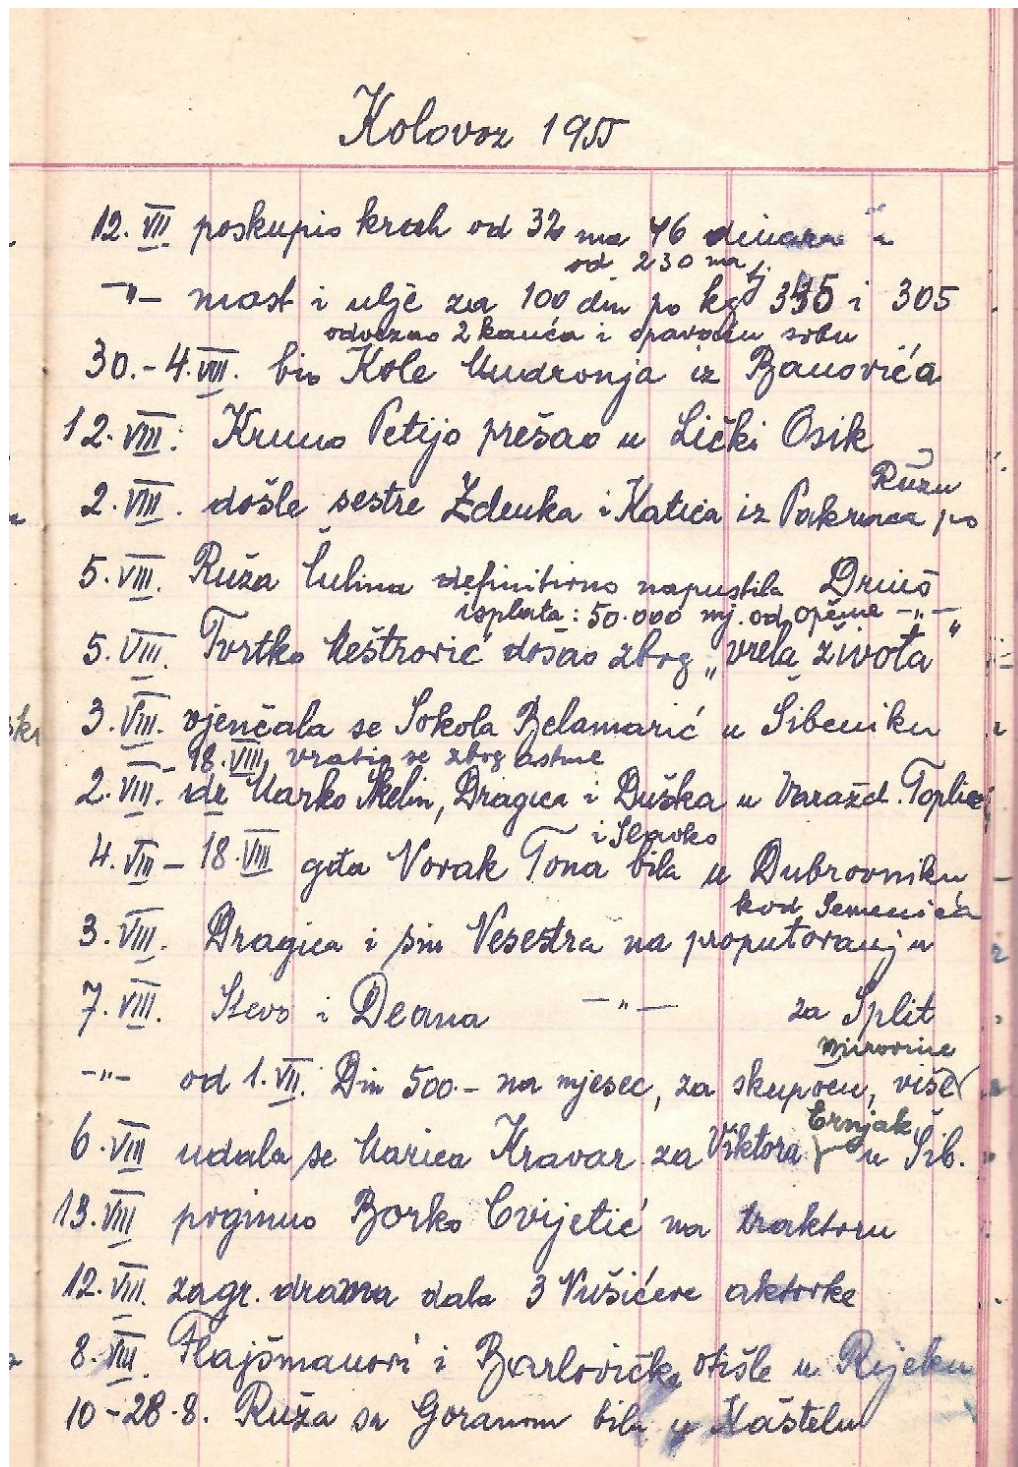 Kolovoz 1955
12. VII poskupio kruh od 32 na 46 dinara
od 230 na
-"- mast i ulje za 100 din po kg tj. 335 i 305
odvezao 2 kauča i spavaću sobu
30.-4. VIII. bio Kole Mudronja iz Banovića
12. VIII. Kruno Petijo prešao u Lički Osik
Ružu
2. VIII. došle sestre Zdenka i Katica iz Pakraca po
5. VIII. Ruža Čulina definitivno napustila Drniš
isplata: 50.000 mj. od općine -"-
5. VIII. Tvrtko Meštrović došao zbog „vrela života"
3. VIII. vjenčala se Sokola Belamarić u Šibeniku
- 18. VIII, vratio se zbog astme
2. VIII. dr Marko Skelin, Dragica i Duška u Varažd. Toplice
i Slavko
4. VIII - 18. VIII gđa Novak Tona bila u Dubrovniku
kod Semenića
3. VIII. Dragica i sin Vesestra na proputovanju
7. VIII. Stevo i Deana -"- za Split
mirovine
-"- od 1. VII. Din 500.- na mjesec, za skupoću, više
Crnjak
6. VIII udala se Marica Kravar za Viktora u Šib.
13. VIII poginuo Borko Cvijetić na traktoru
12. VIII. zagr. drama dala 3 Nušićeve aktovke
8. VIII. Flajšmanovi i Barlovićka otišle u Rijeku
10-28.8. Ruža sa Goranom bila u Kaštelu